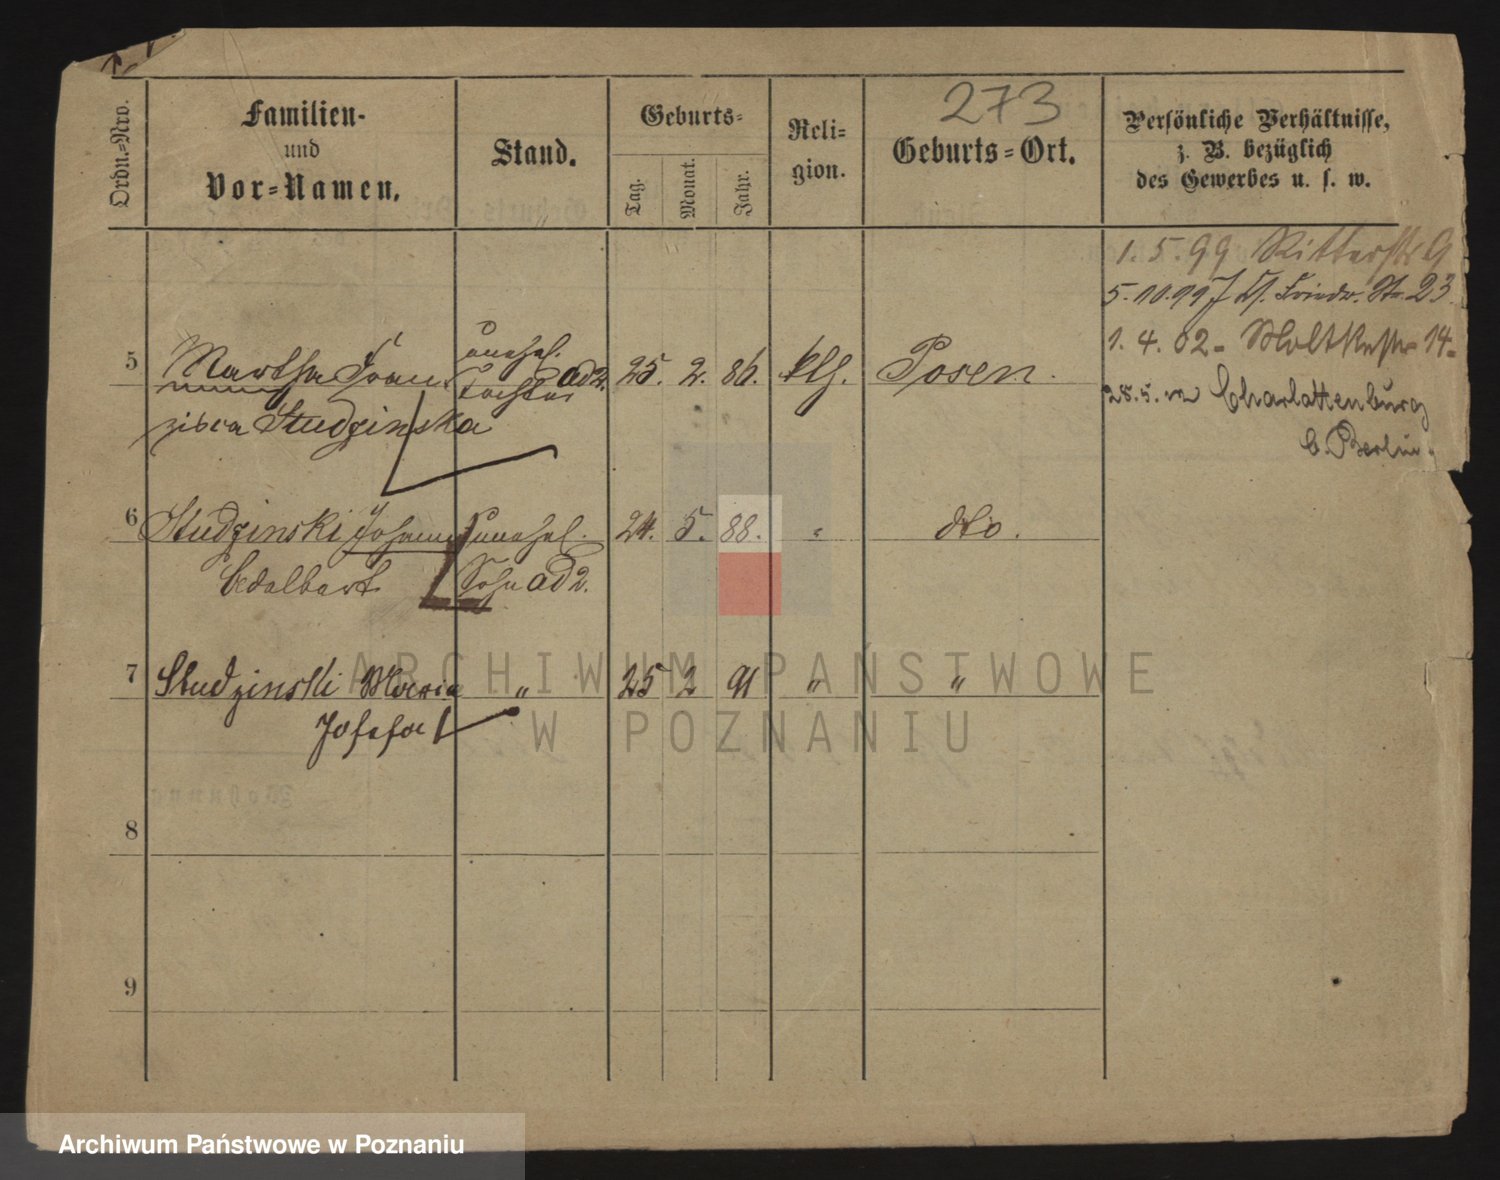 273
Ordn.-Nro.
Familien-
und
Vor-Namen.
Stand.
Geburts-
Tag.
Monat.
Jahr.
Reli-
gion.
Geburts-Ort.
Persönliche Verhältnisse,
z. B. bezüglich
des Gewerbes u. s. w.
1.5.99 Ritterstr 9
5.10.99 Friedr. Str. 23
1.4.02 - Moltkestr 14-
28.5. Charlottenburg
b. Berlin.
5 Martha Fran unehel. Tochter ad 2. 25. 2. 86. kth. Posen.
ziska Studzinska
6 Studzinski Johann unehel. 24. 5. 88. " dto.
Adalbert Sohn ad 2.
7 Studzinski Maria " 25 2 91 " "
Josefa
8
9
ARCHIWUM PAŃSTWOWE
W POZNANIU
Archiwum Państwowe w Poznaniu